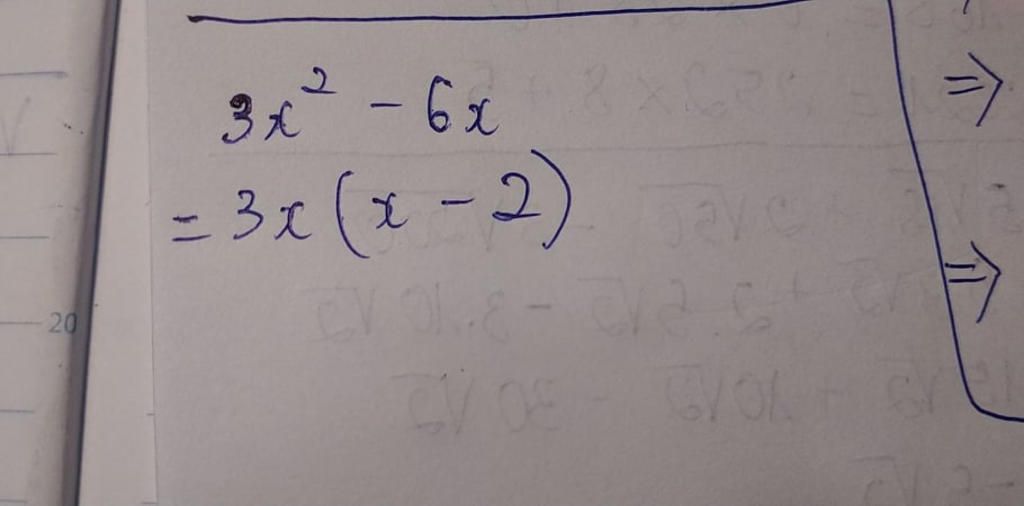 3x² - 6x
= 3x (x - 2)
⇒
⇒
20